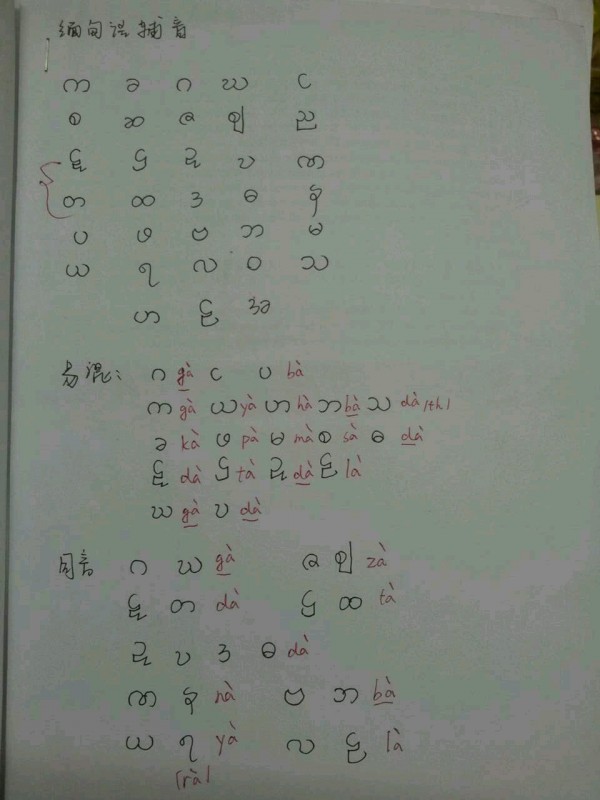 缅甸语辅音
က ခ ဂ ဃ င
စ ဆ ဇ ဈ ည
ဋ ဌ ဍ ဎ ဏ
တ ထ ဒ ဓ န
ပ ဖ ဗ ဘ မ
ယ ရ လ ဝ သ
ဟ ဠ အ
易混: ဂ gà င ပ bà
က gà ယ yà ဟ hà ဘ bà သ dà /th/
ခ kà ဖ pà မ mà စ sà ဓ dà
ဋ dà ဌ tà ဍ dà ဠ là
ဃ gà ဎ dà
同音 ဂ ဃ gà ဇ ဈ zà
ဋ တ dà ဌ ထ tà
ဍ ဎ ဒ ဓ dà
ဏ န nà ဗ ဘ bà
ယ ရ yà လ ဠ là
[rà]